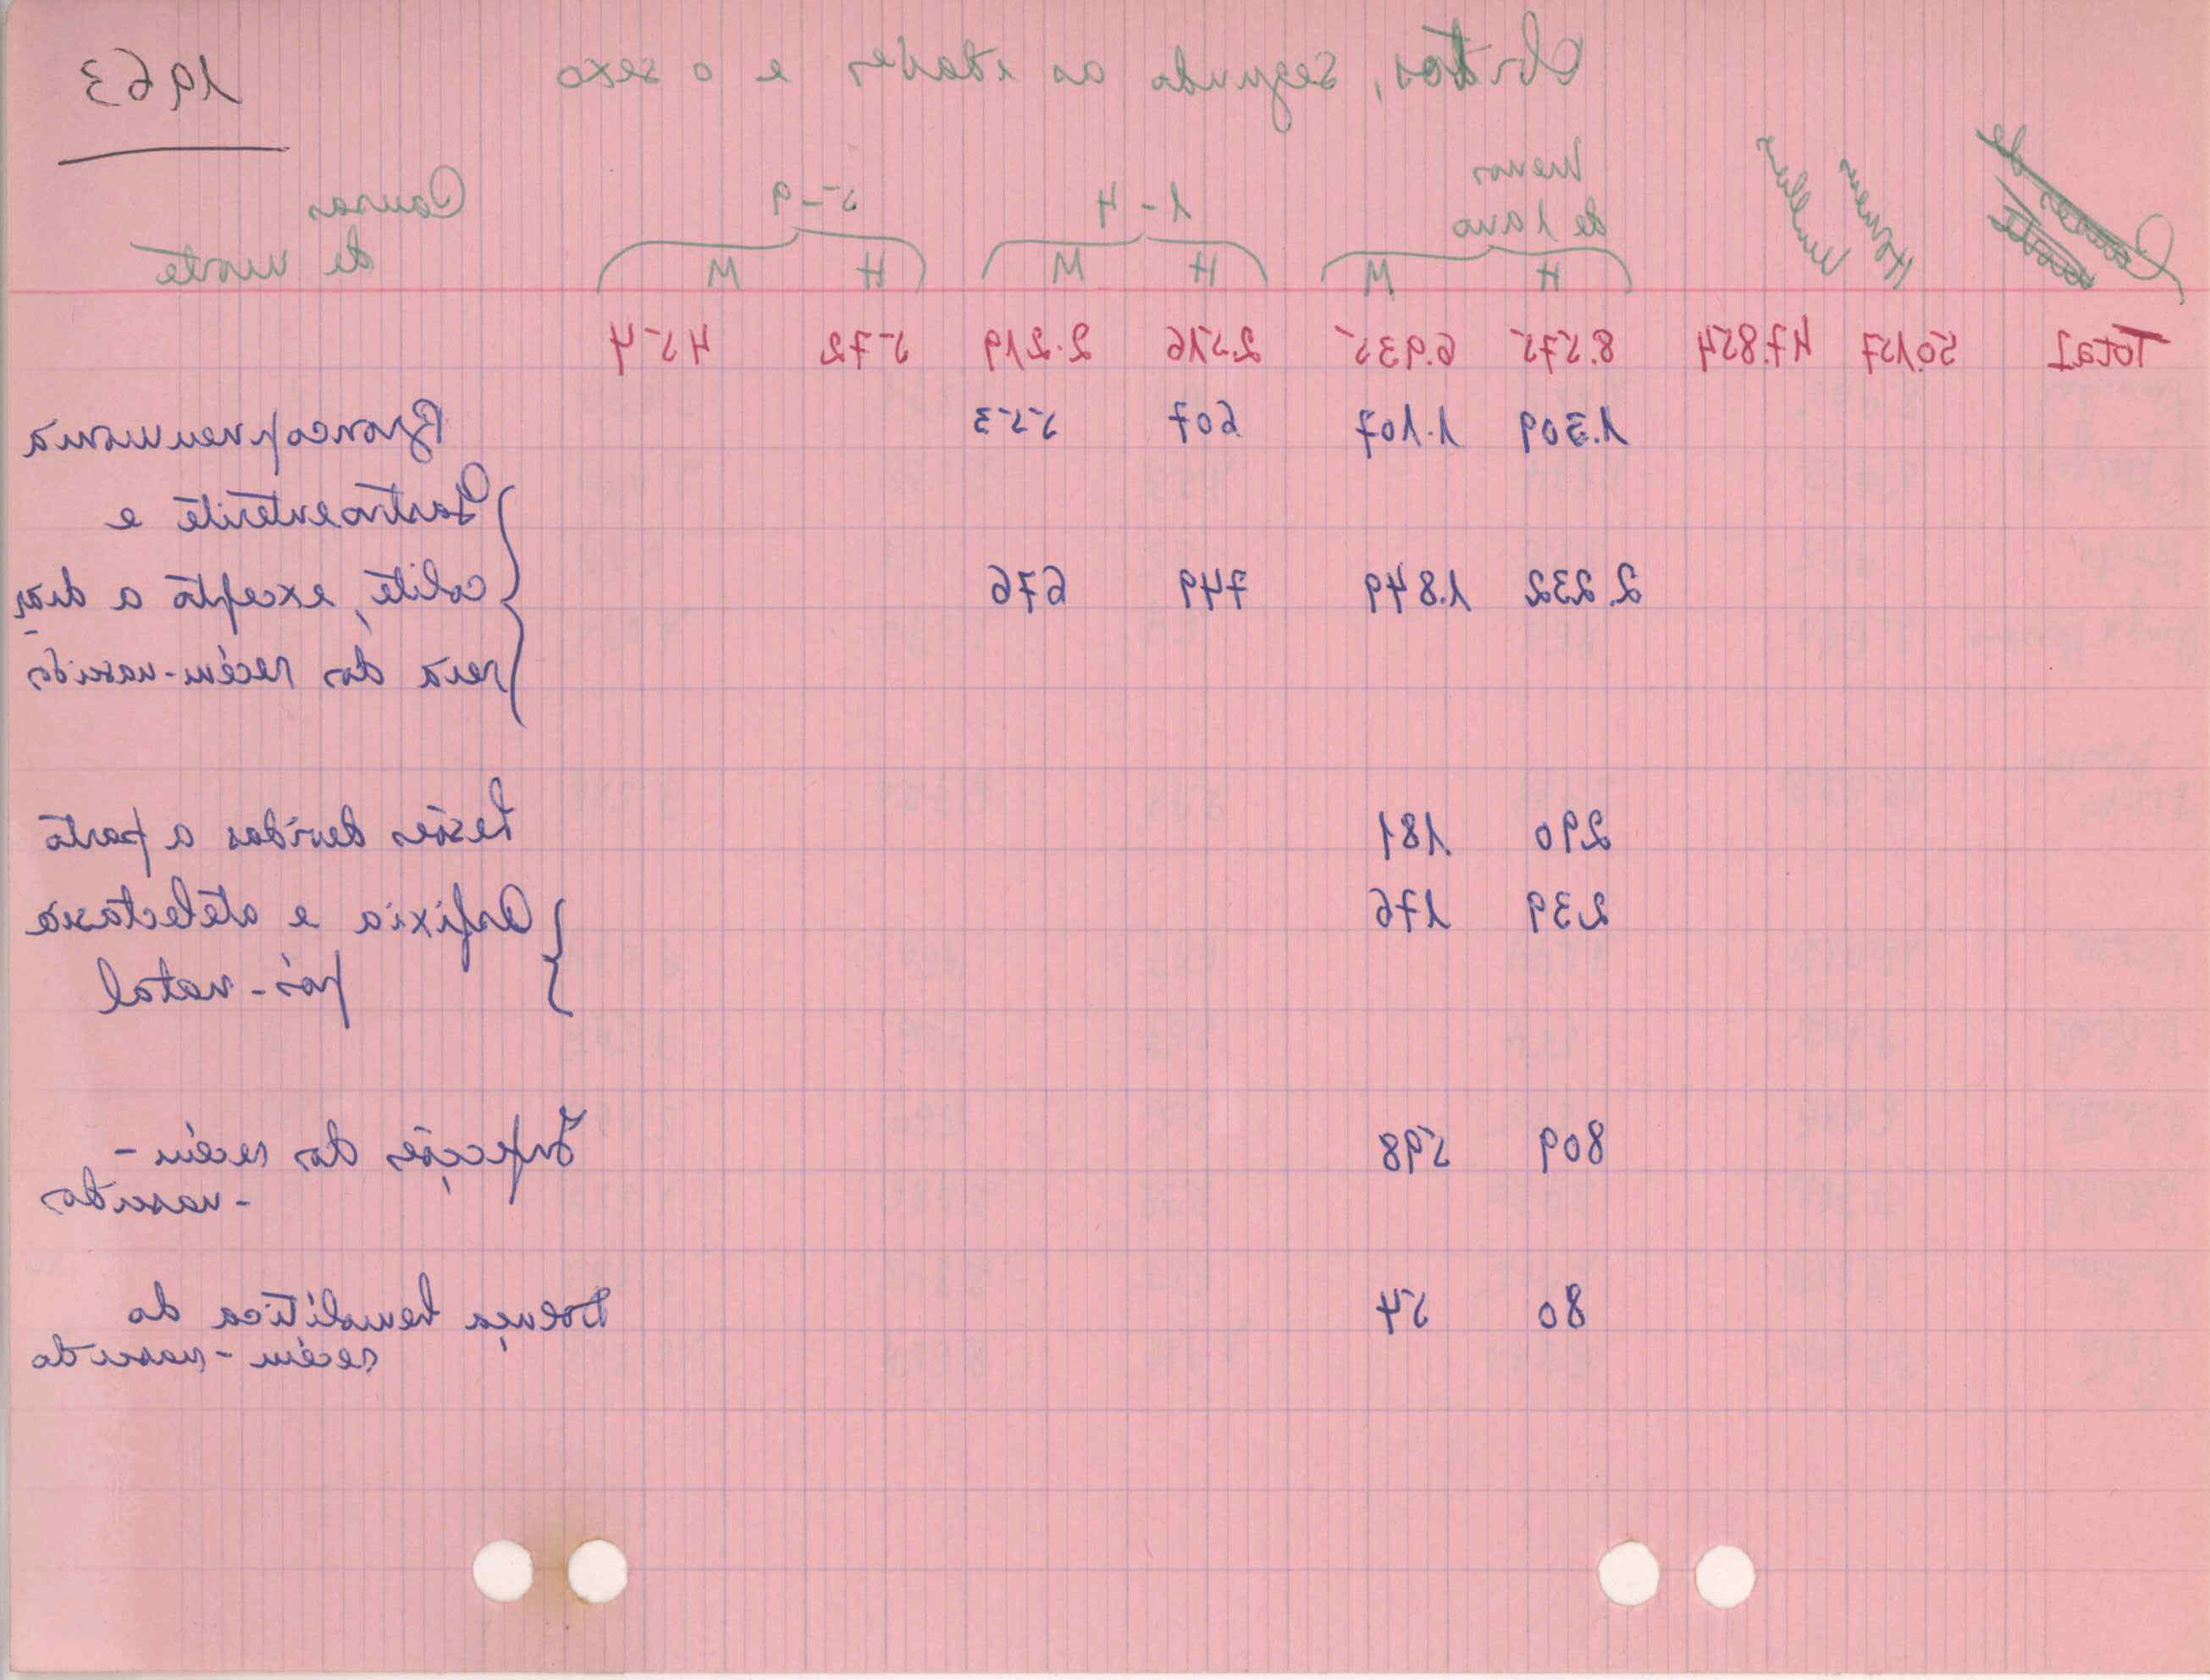 Óbitos, segundo as idades e o sexo 1963
Causas de
morte
Homens
Mulheres
Menos
de 1 ano
1-4
5-9
Causas
de morte
H M H M H M
Total 50.157 47.854 8.575 6.935 2.516 2.219 572 454
1.309 1.107 607 553 Broncopneumonia
Gastroenterite e
2.232 1.849 749 676 colite, excepto a diar
reia dos recém-nascidos
290 181 Lesões devidas a parto
239 176 Asfixia e atelectasia
pós-natal
809 598 Infecções dos recém-
-nascidos
80 54 Doença hemolítica do
recém-nascido